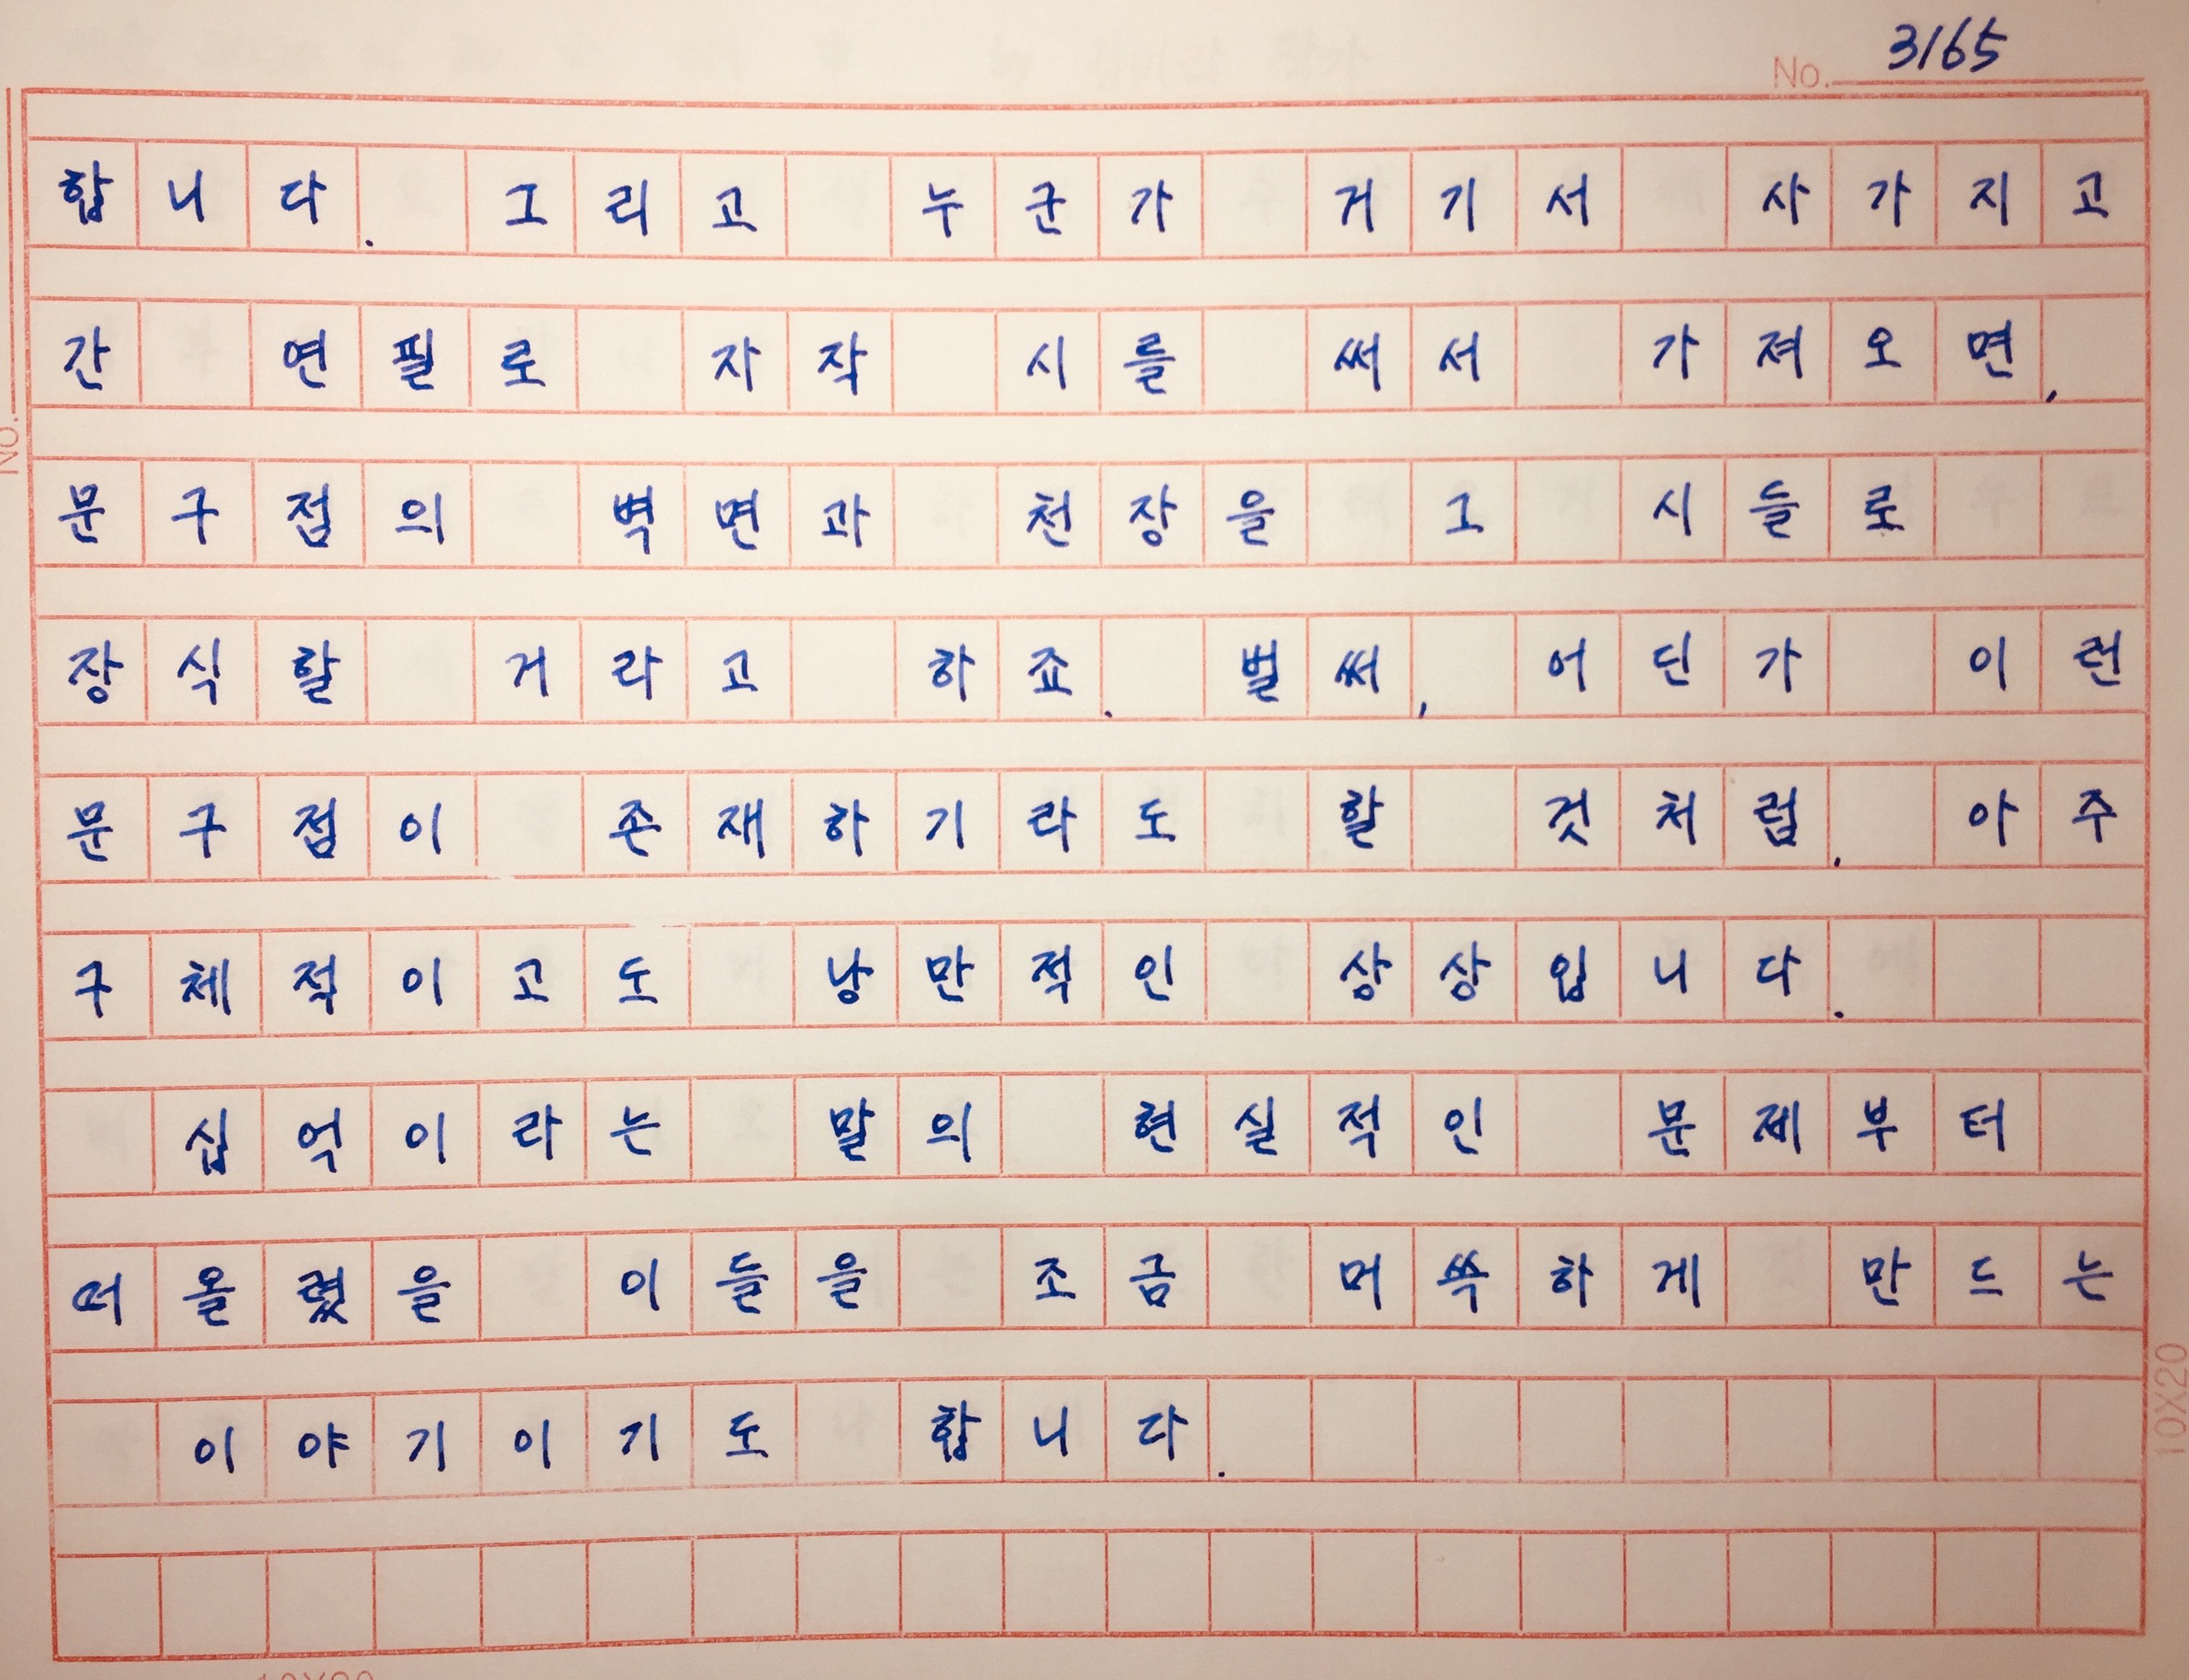 No. 3165
합니다. 그리고 누군가 거기서 사가지고
간 연필로 자작 시를 써서 가져오면,
문구점의 벽면과 천장을 그 시들로
장식할 거라고 하죠. 벌써, 어딘가 이런
문구점이 존재하기라도 할 것처럼. 아주
구체적이고도 낭만적인 상상입니다.
십억이라는 말의 현실적인 문제부터
떠올렸을 이들을 조금 머쓱하게 만드는
이야기이기도 합니다.
No.
10X20
10X20